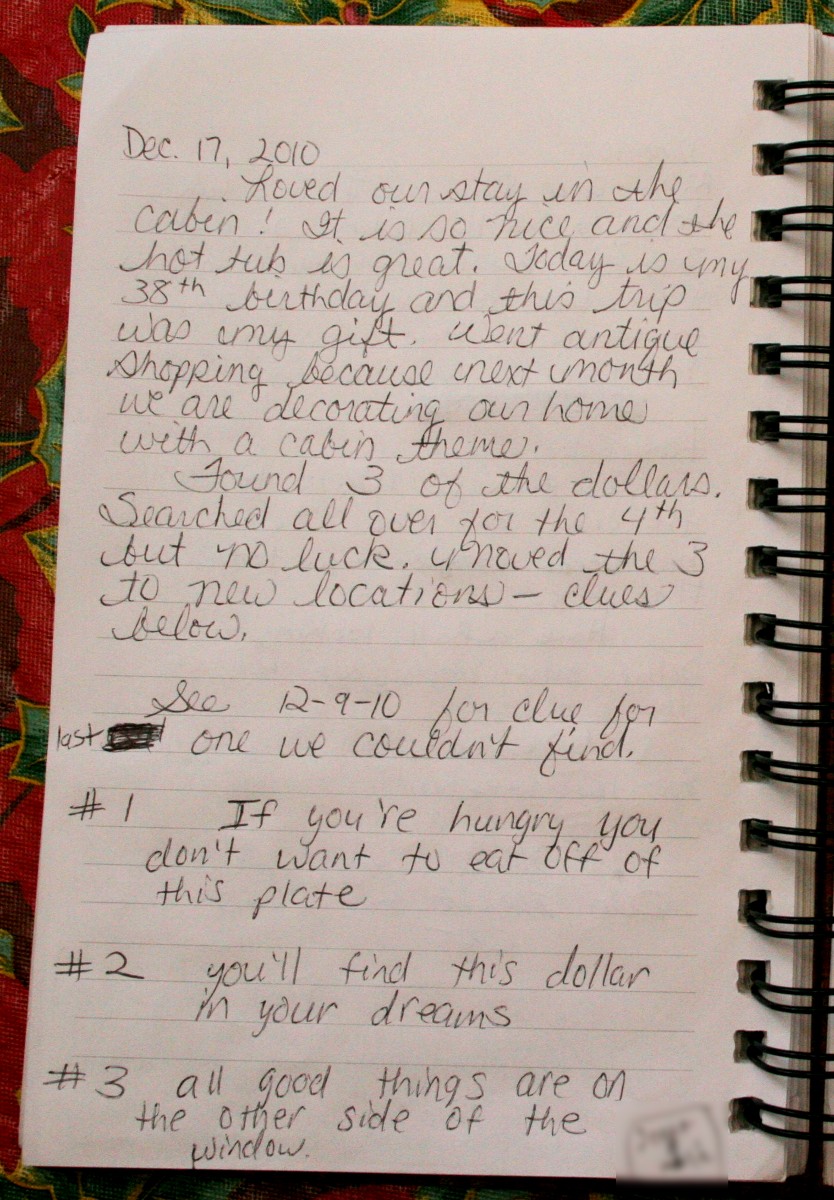 Dec. 17, 2010
Loved our stay in the
cabin! It is so nice and the
hot tub is great. Today is my
38th birthday and this trip
was my gift. Went antique
shopping because next month
we are decorating our home
with a cabin theme.
Found 3 of the dollars.
Searched all over for the 4th
but no luck. Moved the 3
to new locations - clues
below.
See 12-9-10 for clue for
last one we couldn't find.
#1 If you're hungry you
don't want to eat off of
this plate
#2 you'll find this dollar
in your dreams
#3 all good things are on
the other side of the
window.